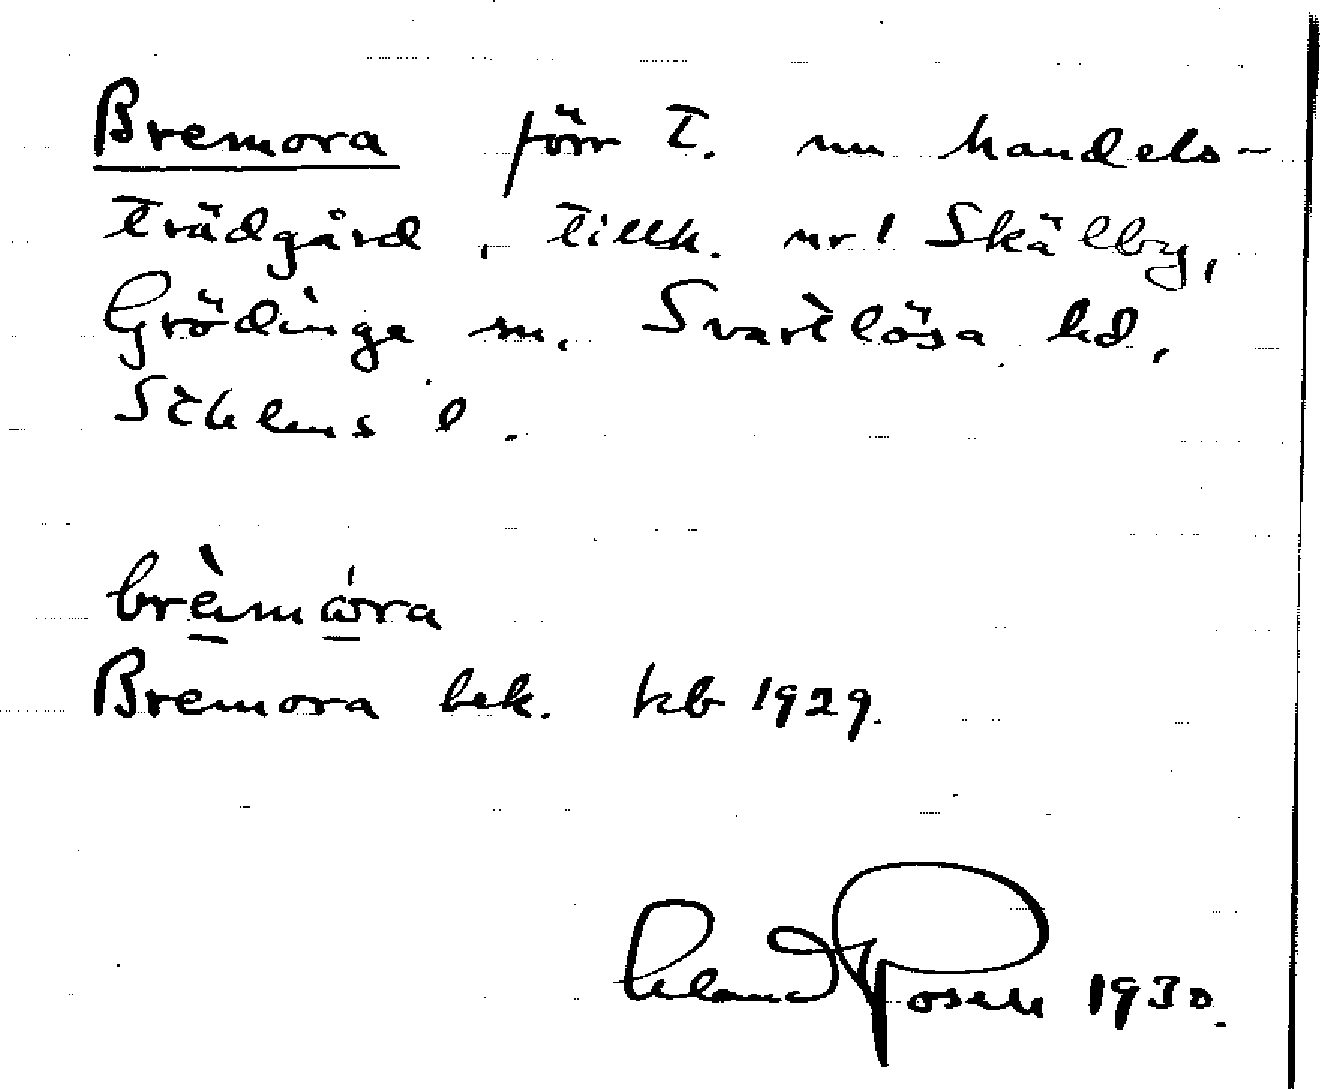 Bremora förr t. nu handels-
trädgård, tillh. nr 1 Skälby,
Grödinge sn, Svartlösa hd,
Sthlms l.
brèmóra
Bremora bek. kb 1929.
Erland Rosell 1930.